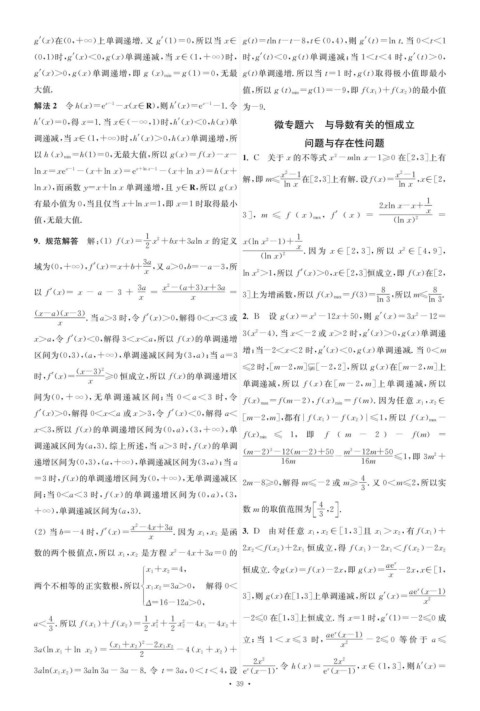 g′(x)在(0,+∞)上单调递增. 又 g′(1)=0,所以当 x∈
(0,1)时,g′(x)<0,g(x)单调递减,当 x∈(1,+∞)时,
g′(x)>0,g(x)单调递增,即 g(x)min=g(1)=0,无最
大值.
解法 2 令 h(x)=e^{x-1}-x(x∈R),则 h′(x)=e^{x-1}-1. 令
h′(x)=0,得 x=1. 当 x∈(-∞,1)时,h′(x)<0,h(x)单
调递减,当 x∈(1,+∞)时,h′(x)>0,h(x)单调递增,所
以 h(x)min=h(1)=0,无最大值,所以 g(x)=f(x)-x-
ln x=xe^{x-1}-(x+ln x)=e^{x+ln x-1}-(x+ln x)=h(x+
ln x),而函数 y=x+ln x 单调递增,且 y∈R,所以 g(x)
有最小值为 0,当且仅当 x+ln x=1,即 x=1 时取得最小
值,无最大值.
9. 规范解答 解:(1) f(x)=1/2 x²+bx+3aln x 的定义
域为(0,+∞),f′(x)=x+b+3a/x,又 a>0,b=-a-3,所
以 f′(x)=x-a-3+3a/x=(x²-(a+3)x+3a)/x=
(x-a)(x-3)/x. 当 a>3 时,令 f′(x)>0,解得 0<x<3 或
x>a,令 f′(x)<0,解得 3<x<a,所以 f(x)的单调递增
区间为(0,3),(a,+∞),单调递减区间为(3,a);当 a=3
时,f′(x)=(x-3)²/x≥0 恒成立,所以 f(x)的单调递增区
间为(0,+∞),无单调递减区间;当 0<a<3 时,令
f′(x)>0,解得 0<x<a 或 x>3,令 f′(x)<0,解得 a<
x<3,所以 f(x)的单调递增区间为(0,a),(3,+∞),单
调递减区间为(a,3). 综上所述,当 a>3 时,f(x)的单调
递增区间为(0,3),(a,+∞),单调递减区间为(3,a);当 a
=3 时,f(x)的单调递增区间为(0,+∞),无单调递减区
间;当 0<a<3 时,f(x)的单调递增区间为(0,a),(3,
+∞),单调递减区间为(a,3).
(2) 当 b=-4 时,f′(x)=(x²-4x+3a)/x. 因为 x₁,x₂ 是函
数的两个极值点,所以 x₁,x₂ 是方程 x²-4x+3a=0 的
两个不相等的正实数根,所以{x₁+x₂=4, x₁x₂=3a>0, Δ=16-12a>0, 解得 0<
a<4/3. 所以 f(x₁)+f(x₂)=1/2 x₁²+1/2 x₂²-4x₁-4x₂+
3a(ln x₁+ln x₂)=((x₁+x₂)²-2x₁x₂)/2-4(x₁+x₂)+
3aln(x₁x₂)=3aln 3a-3a-8. 令 t=3a,0<t<4,设
g(t)=tln t-t-8,t∈(0,4),则 g′(t)=ln t. 当 0<t<1
时,g′(t)<0,g(t)单调递减;当 1<t<4 时,g′(t)>0,
g(t)单调递增. 所以当 t=1 时,g(t)取得极小值即最小
值,所以 g(t)min=g(1)=-9,即 f(x₁)+f(x₂)的最小值
为-9.
微专题六 与导数有关的恒成立
问题与存在性问题
1. C 关于 x 的不等式 x²-mln x-1≥0 在[2,3]上有
解,即 m≤(x²-1)/ln x 在[2,3]上有解. 设 f(x)=(x²-1)/ln x,x∈[2,
3],m≤f(x)max,f′(x)=(2xln x-x+1/x)/(ln x)²=
(x(ln x²-1)+1/x)/(ln x)². 因为 x∈[2,3],所以 x²∈[4,9],
ln x²>1,所以 f′(x)>0,x∈[2,3]恒成立,即 f(x)在[2,
3]上为增函数,所以 f(x)max=f(3)=8/ln 3,所以 m≤8/ln 3.
2. B 设 g(x)=x³-12x+50,则 g′(x)=3x²-12=
3(x²-4). 当 x<-2 或 x>2 时,g′(x)>0,g(x)单调递
增;当-2<x<2 时,g′(x)<0,g(x)单调递减. 当 0<m
≤2 时,[m-2,m]⫋[-2,2],所以 g(x)在[m-2,m]上
单调递减,所以 f(x)在[m-2,m]上单调递减,所以
f(x)max=f(m-2),f(x)min=f(m). 因为任意 x₁,x₂∈
[m-2,m],都有|f(x₁)-f(x₂)|≤1,所以 f(x)max-
f(x)min≤1,即 f(m-2)-f(m)=
((m-2)³-12(m-2)+50)/16m-(m³-12m+50)/16m≤1,即 3m²+
2m-8≥0,解得 m≤-2 或 m≥4/3. 又 0<m≤2,所以实
数 m 的取值范围为[4/3,2].
3. D 由对任意 x₁,x₂∈[1,3]且 x₁>x₂,有 f(x₁)+
2x₂<f(x₂)+2x₁ 恒成立,得 f(x₁)-2x₁<f(x₂)-2x₂
恒成立. 令g(x)=f(x)-2x,即 g(x)=ae^x/x-2x,x∈[1,
3],则 g(x)在[1,3]上单调递减,所以 g′(x)=ae^x(x-1)/x²
-2≤0 在[1,3]上恒成立. 当 x=1 时,g′(1)=-2≤0 成
立;当 1<x≤3 时,ae^x(x-1)/x²-2≤0 等价于 a≤
2x²/(e^x(x-1)). 令 h(x)=2x²/(e^x(x-1)),x∈(1,3],则 h′(x)=
· 39 ·